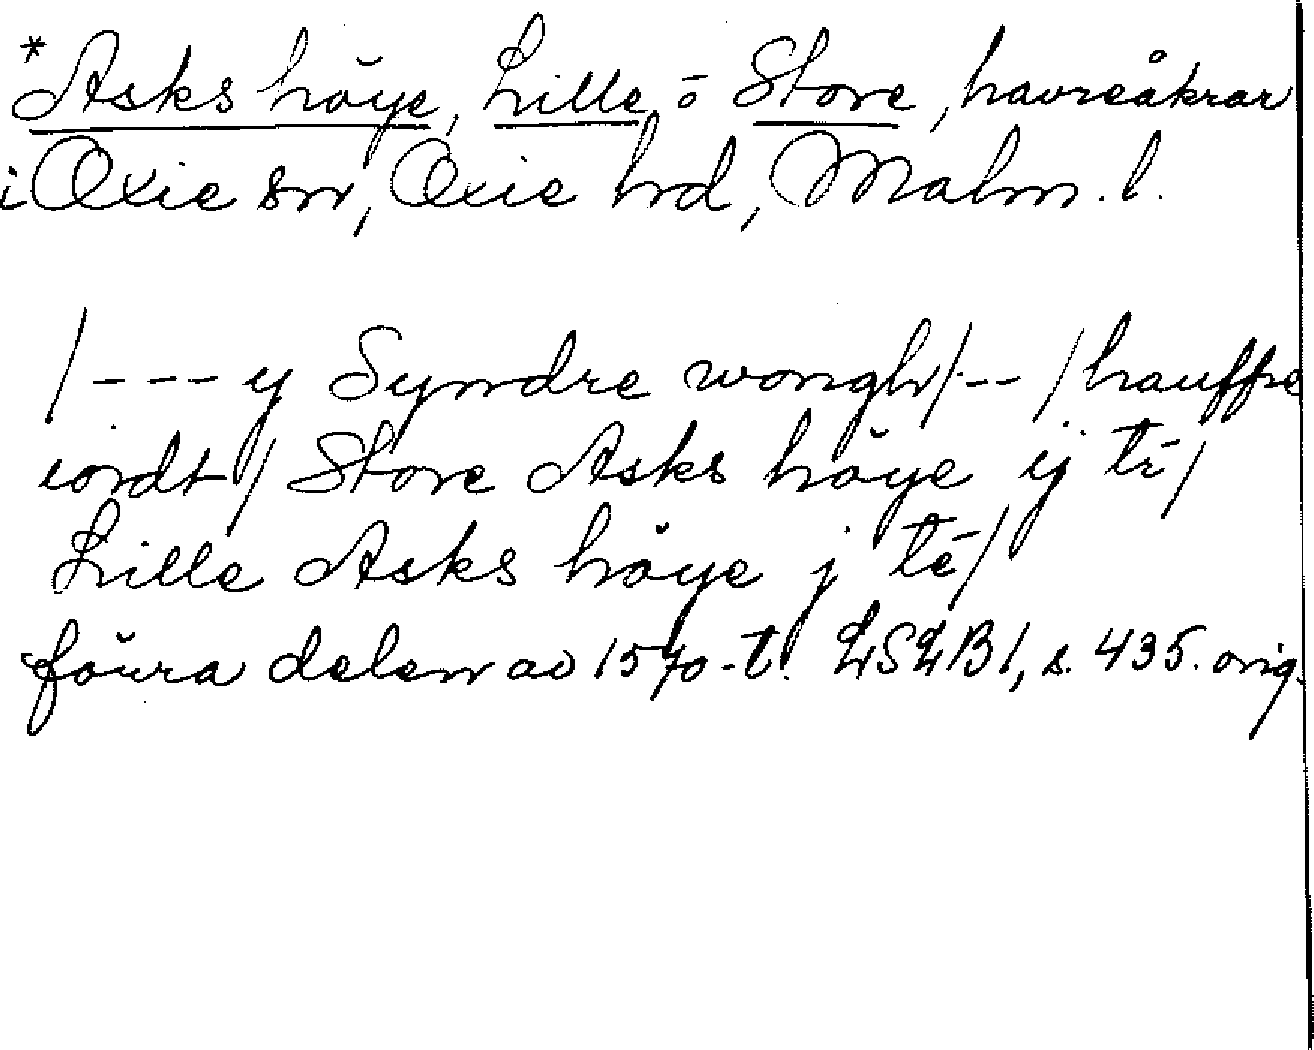 *Asks höye, Lille o Store, havreåkrar
i Oxie sn, Oxie hd, Malm. l.
/--- y Syndre wongh/-- /hauffre
iordt/ Store Asks höye ij te/
Lille Asks höye j te/
förra delen av 1570-t. LSLB 1, s. 435. orig.